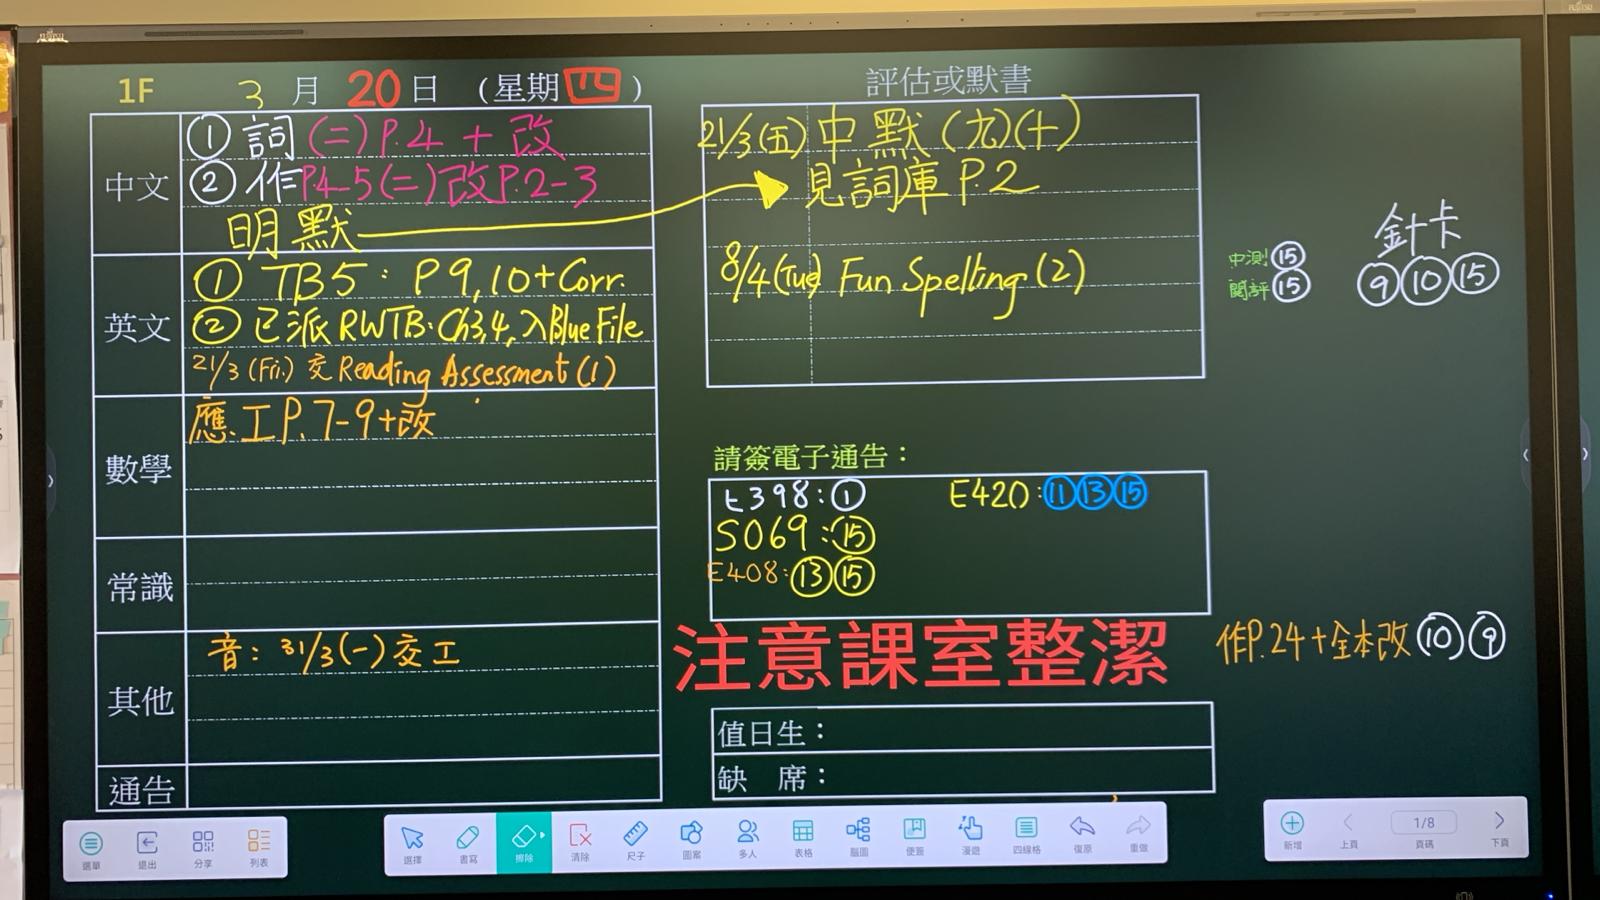 1F 3月20日(星期四)
中文
①詞(二)P.4+改
②作P.4-5(二)改P.2-3
明默
英文
① TB5: P9,10+Corr.
② 已派RWTB:Ch3,4,入Blue File
21/3(Fri.)交Reading Assessment(1)
數學
應工P.7-9+改
常識
其他
音:31/3(一)交工
通告
評估或默書
21/3(五)中默(九)(十)
見詞庫P.2
8/4(Tue) Fun Spelling(2)
中測⑮
閱評⑮
針卡
⑨⑩⑮
請簽電子通告:
E398:① E420:⑪⑬⑮
S069:⑮
E408:⑬⑮
注意課室整潔
作P.24+全本改⑩⑨
值日生:
缺 席:
選單 退出 分享 列表
選擇 書寫 擦除 清除 尺子 圖案 多人 表格 腦圖 便簽 漫遊 四線格 復原 重做
新增 上頁 1/8 頁碼 下頁